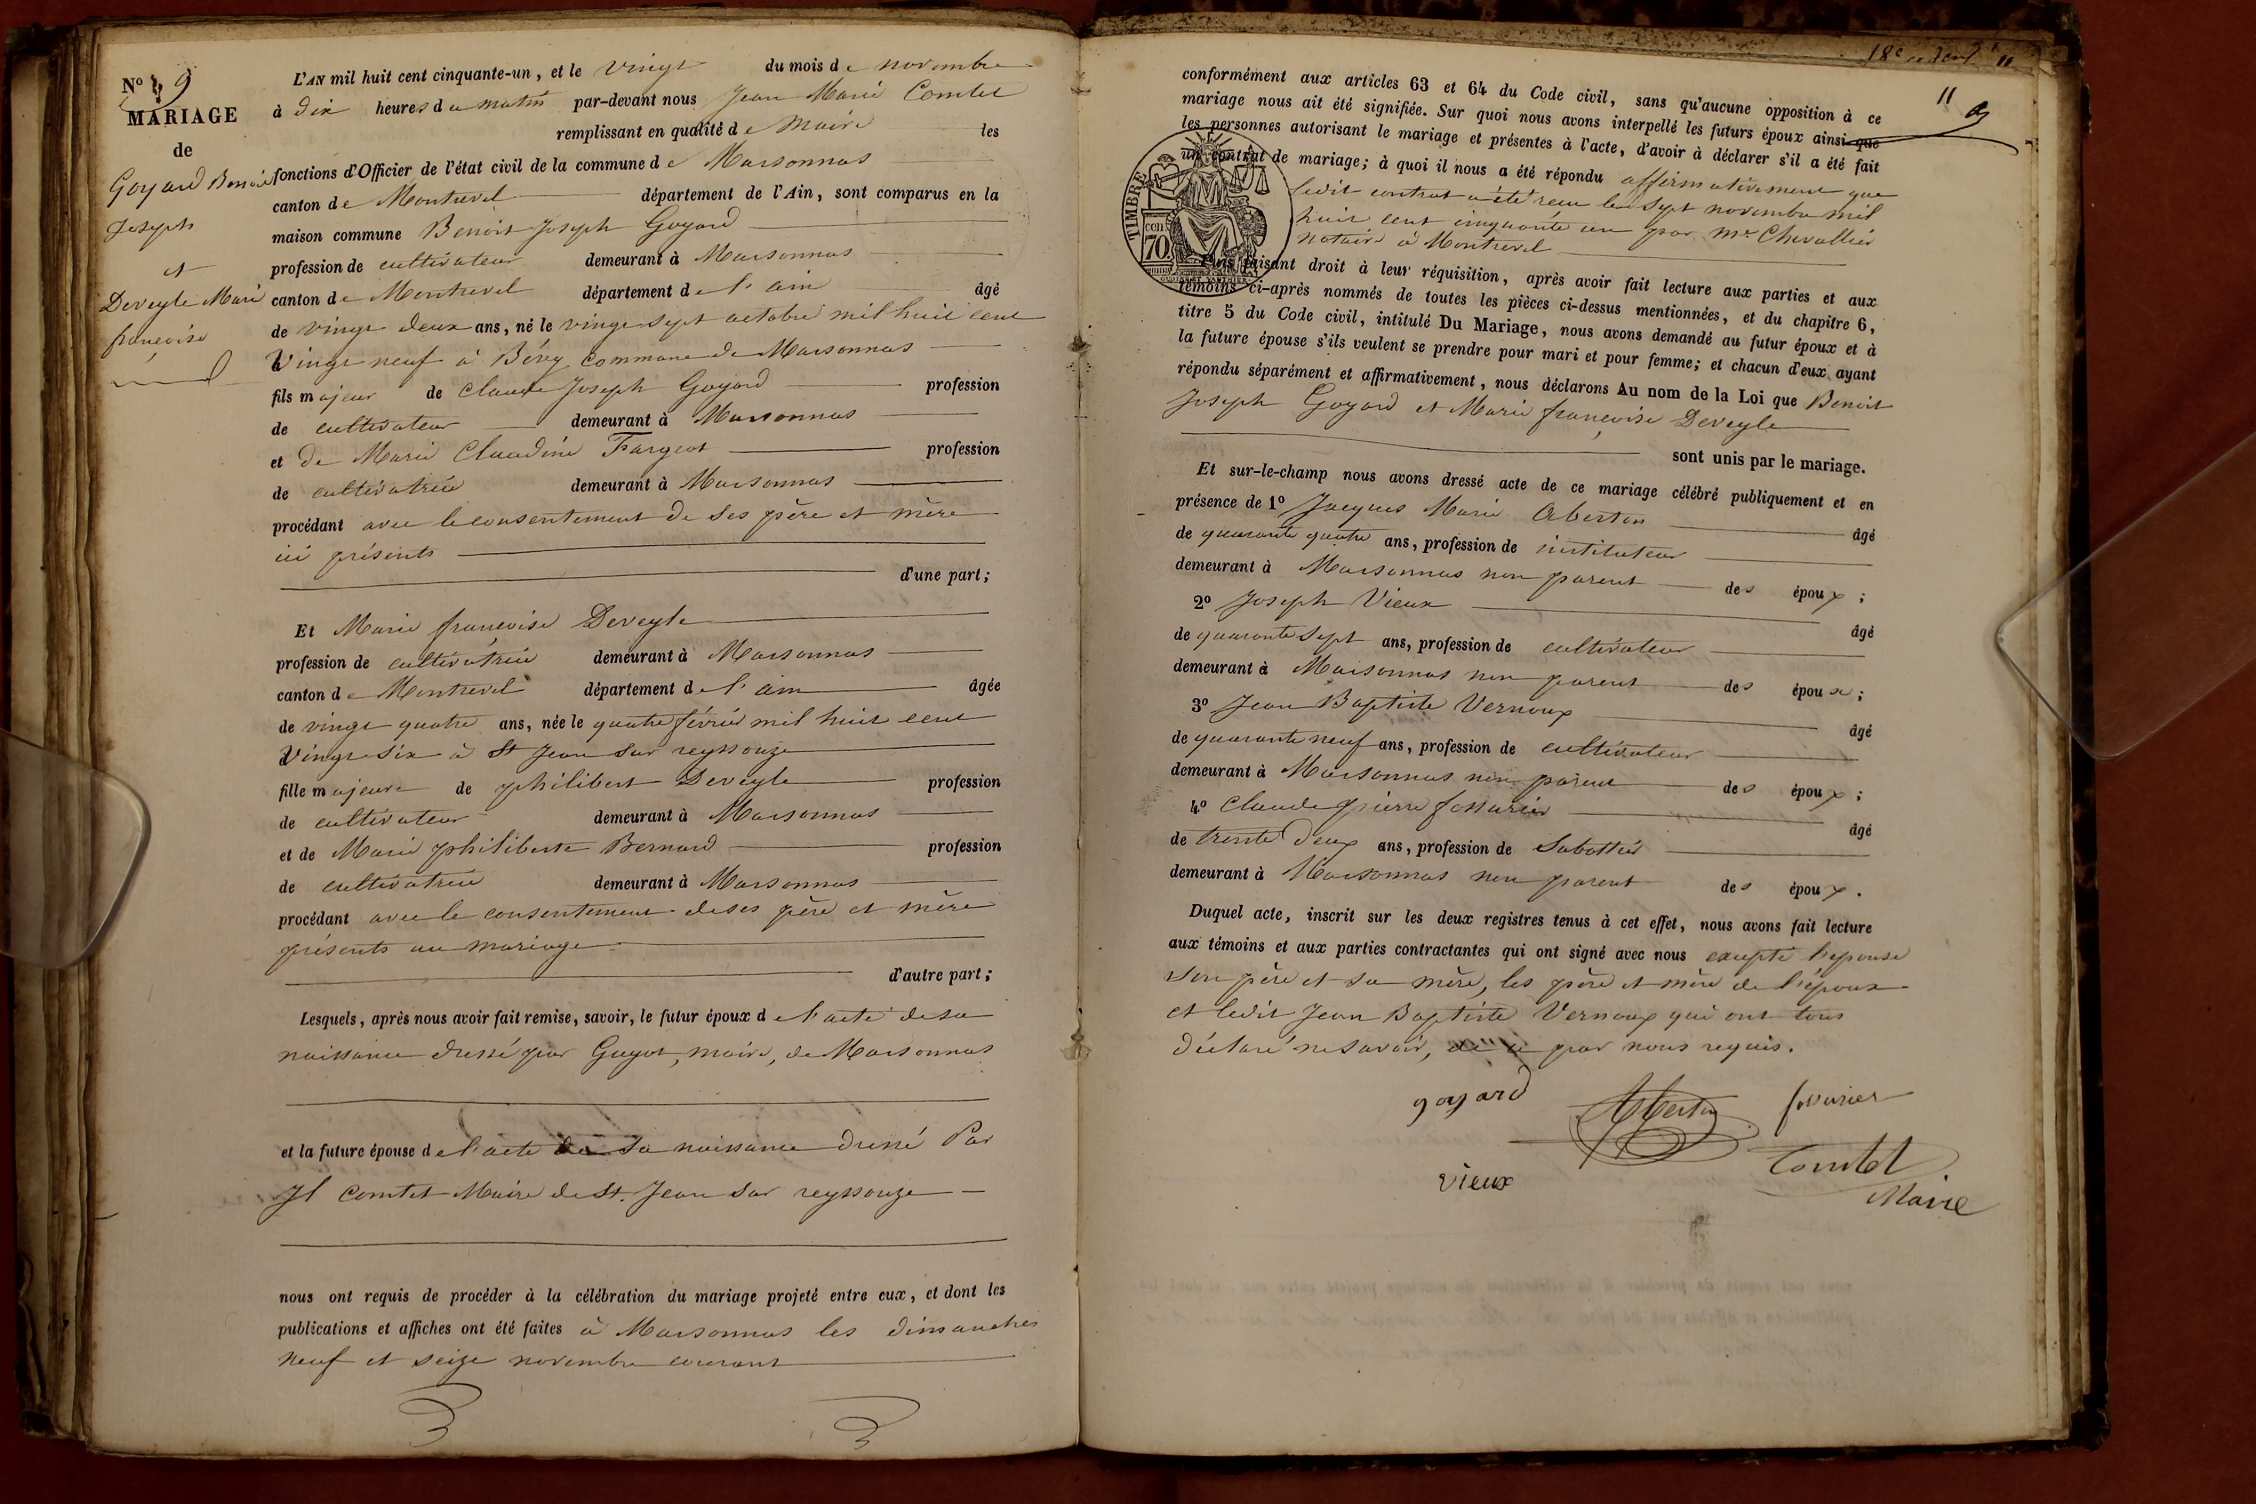 N° 9
MARIAGE
de
Goyard Benoit
Joseph
et
Deveyle Marie
françoise
L'AN mil huit cent cinquante-un, et le vingt du mois de novembre
à dix heures du matin par-devant nous Jean Marie Comtet
remplissant en qualité de Maire les
fonctions d'Officier de l'état civil de la commune de Marsonnas
canton de Montrevel département de l'Ain, sont comparus en la
maison commune Benoit Joseph Goyard
profession de cultivateur demeurant à Marsonnas
canton de Montrevel département de l'ain âgé
de vingt deux ans, né le vingt sept octobre mil huit cent
vingt neuf à Bévy commune de Marsonnas
fils majeur de Claude Joseph Goyard profession
de cultivateur demeurant à Marsonnas
et de Marie Claudine Fargeot profession
de cultivatrice demeurant à Marsonnas
procédant avec le consentement de ses père et mère
ici présents
d'une part;
Et Marie françoise Deveyle
profession de cultivatrice demeurant à Marsonnas
canton de Montrevel département de l'ain âgée
de vingt quatre ans, née le quatre février mil huit cent
vingt six à St Jean sur reyssouze
fille majeure de philibert Deveyle profession
de cultivateur demeurant à Marsonnas
et de Marie philiberte Bernard profession
de cultivatrice demeurant à Marsonnas
procédant avec le consentement de ses père et mère
présents au mariage
d'autre part;
Lesquels, après nous avoir fait remise, savoir, le futur époux de l'acte de sa
naissance dressé par Guyot, maire, de Marsonnas
et la future épouse de l'acte de sa naissance dressé Par
Jh Comtet Maire de St. Jean sur reyssouze
nous ont requis de procéder à la célébration du mariage projeté entre eux, et dont les
publications et affiches ont été faites à Marsonnas les dimanches
neuf et seize novembre courant
11
conformément aux articles 63 et 64 du Code civil, sans qu'aucune opposition à ce
mariage nous ait été signifiée. Sur quoi nous avons interpellé les futurs époux ainsi que
les personnes autorisant le mariage et présentes à l'acte, d'avoir à déclarer s'il a été fait
un contrat de mariage; à quoi il nous a été répondu affirmativement que
ledit contrat a été reçu le sept novembre mil
huit cent cinquante un par Me Chevallier
notaire à Montrevel
TIMBRE
cen
70
Puis faisant droit à leur réquisition, après avoir fait lecture aux parties et aux
témoins ci-après nommés de toutes les pièces ci-dessus mentionnées, et du chapitre 6,
titre 5 du Code civil, intitulé Du Mariage, nous avons demandé au futur époux et à
la future épouse s'ils veulent se prendre pour mari et pour femme; et chacun d'eux ayant
répondu séparément et affirmativement, nous déclarons Au nom de la Loi que Benoit
Joseph Goyard et Marie françoise Deveyle
sont unis par le mariage.
Et sur-le-champ nous avons dressé acte de ce mariage célébré publiquement et en
présence de 1° Jacques Marie Alberton âgé
de quarante quatre ans, profession de instituteur
demeurant à Marsonnas non parent des époux;
2° Joseph Vieux âgé
de quarante sept ans, profession de cultivateur
demeurant à Marsonnas non parent des époux;
3° Jean Baptiste Vernoux âgé
de quarante neuf ans, profession de cultivateur
demeurant à Marsonnas non parent des époux;
4° Claude pierre fossurier âgé
de trente deux ans, profession de Sabottier
demeurant à Marsonnas non parent des époux.
Duquel acte, inscrit sur les deux registres tenus à cet effet, nous avons fait lecture
aux témoins et aux parties contractantes qui ont signé avec nous excepté l'épouse
son père et sa mère, les père et mère de l'époux
et ledit Jean Baptiste Vernoux qui ont tous
déclaré ne savoir, de ce par nous requis.
goyard
vieux
Comtet
Maire